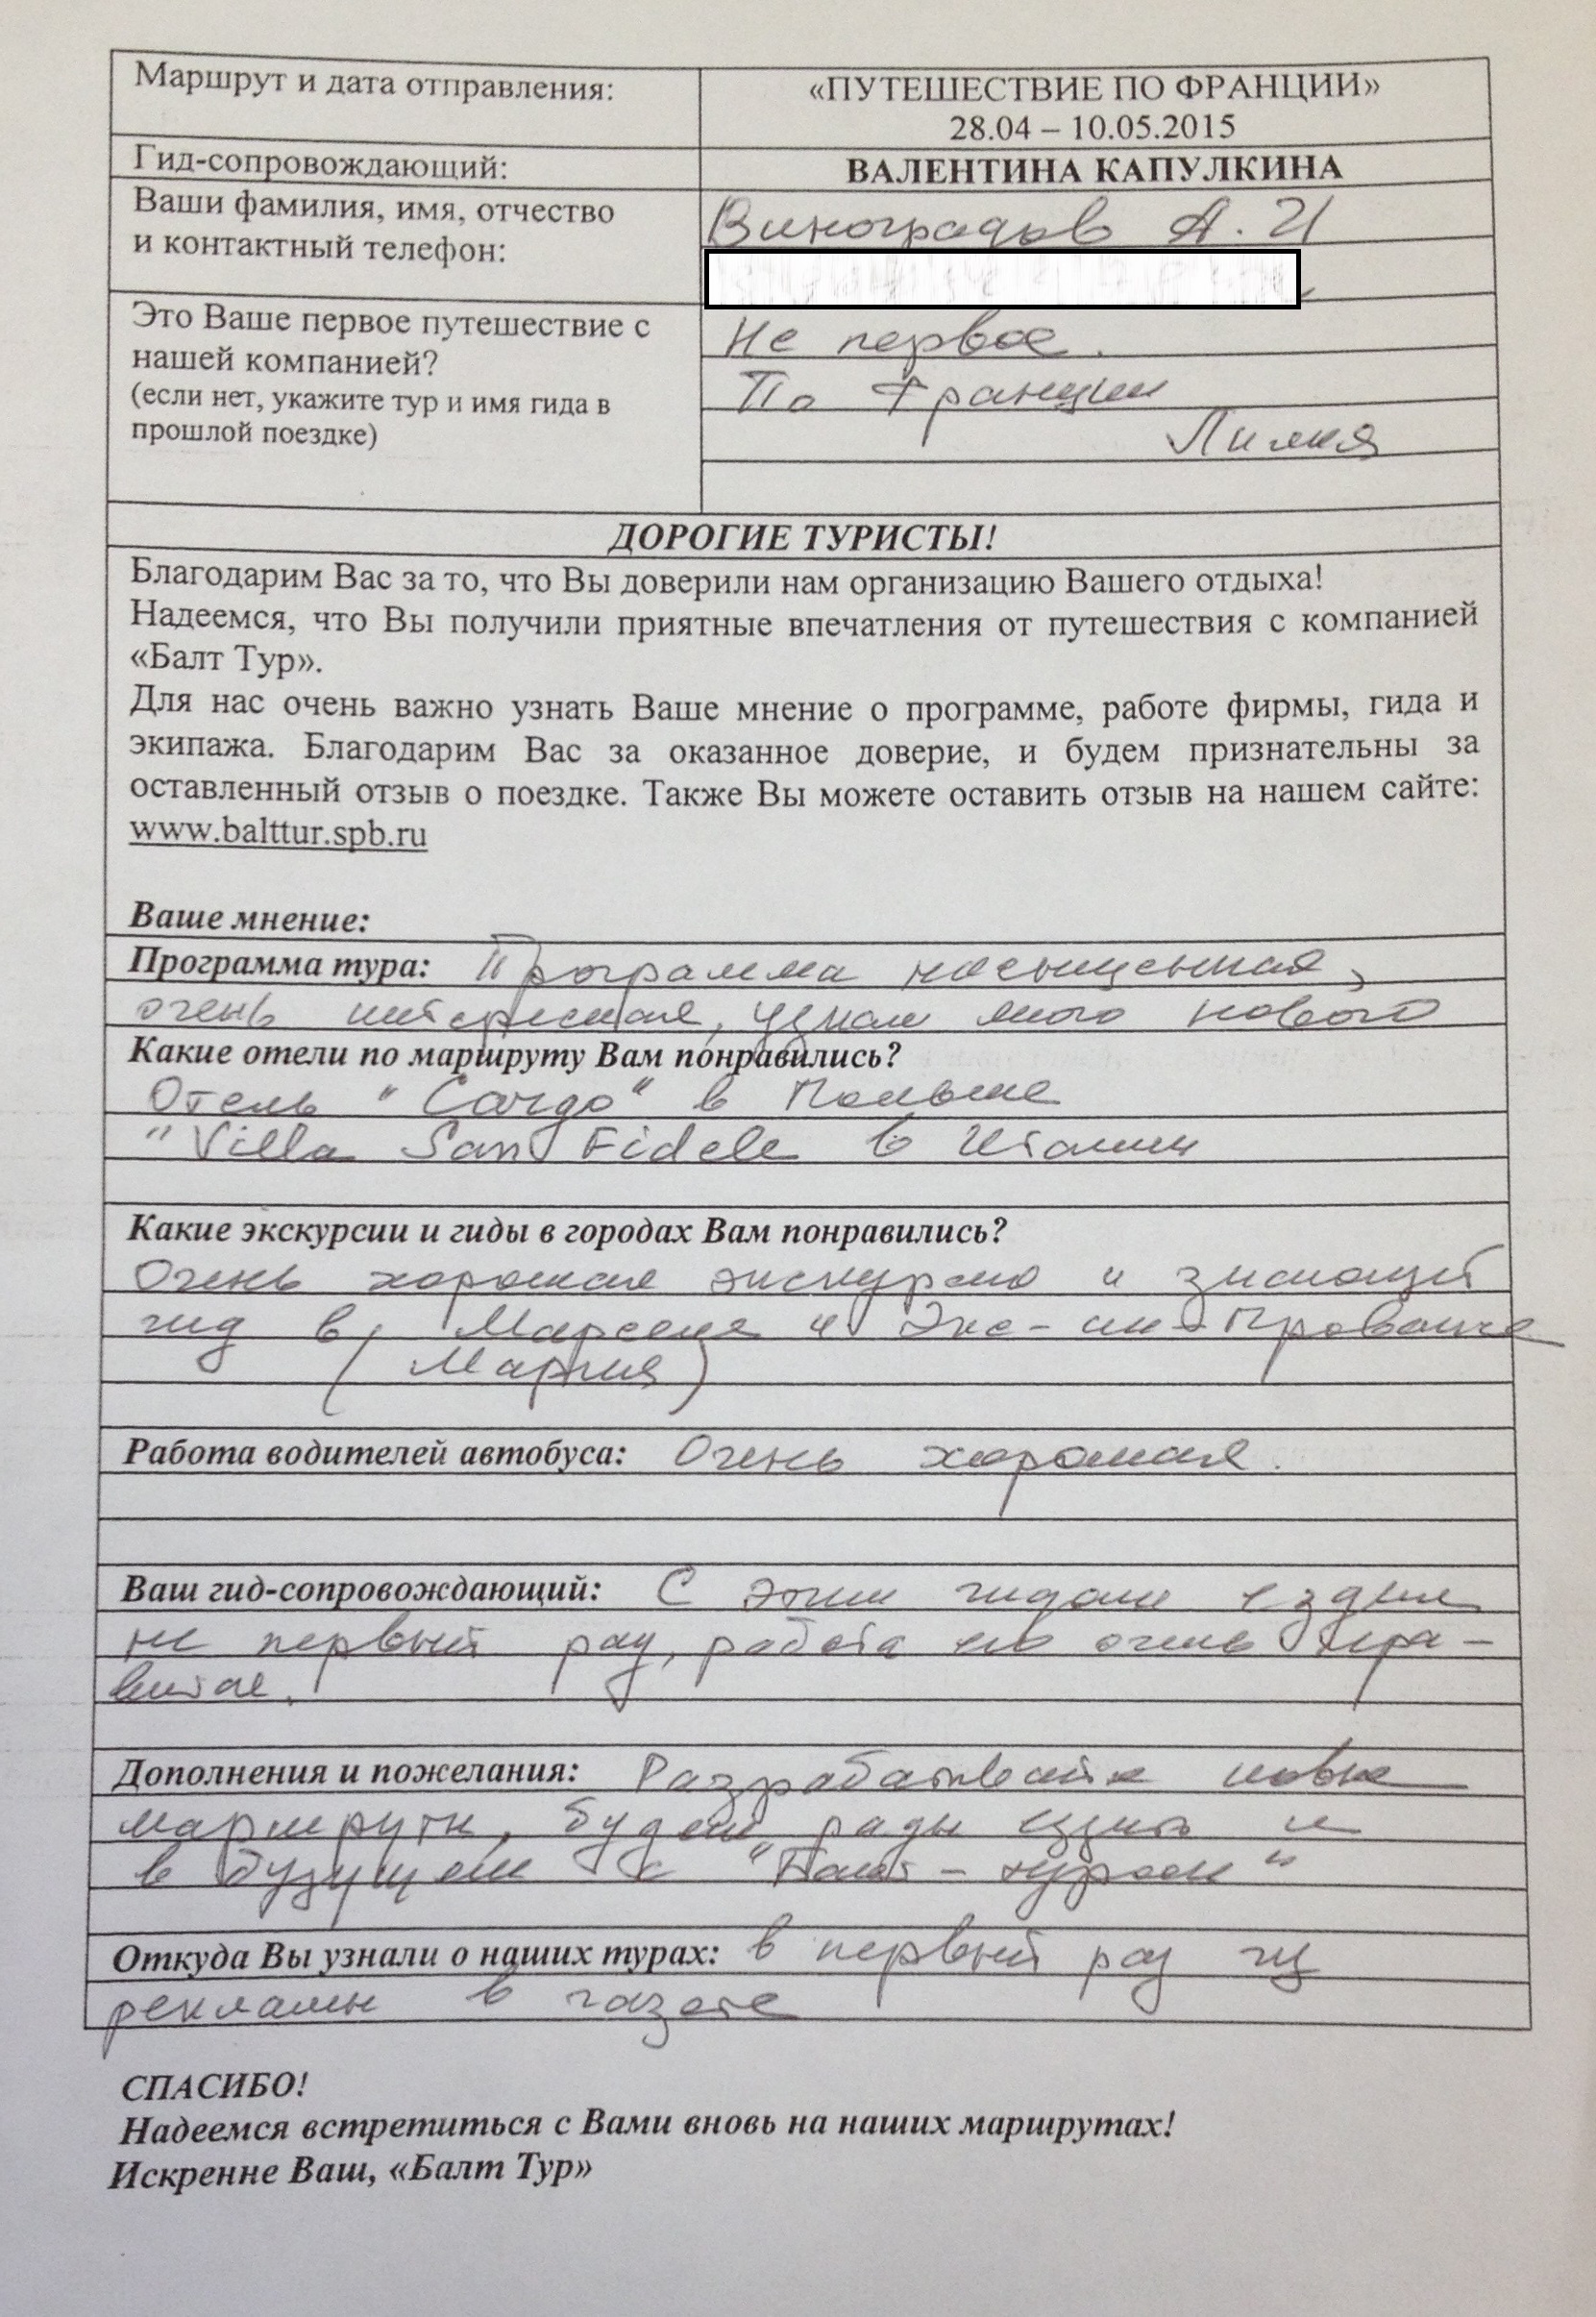 Маршрут и дата отправления:
«ПУТЕШЕСТВИЕ ПО ФРАНЦИИ»
28.04 – 10.05.2015
Гид-сопровождающий:
ВАЛЕНТИНА КАПУЛКИНА
Ваши фамилия, имя, отчество
и контактный телефон:
Виноградов А. И
Это Ваше первое путешествие с
нашей компанией?
(если нет, укажите тур и имя гида в
прошлой поездке)
Не первое.
По Франции
ДОРОГИЕ ТУРИСТЫ!
Благодарим Вас за то, что Вы доверили нам организацию Вашего отдыха!
Надеемся, что Вы получили приятные впечатления от путешествия с компанией
«Балт Тур».
Для нас очень важно узнать Ваше мнение о программе, работе фирмы, гида и
экипажа. Благодарим Вас за оказанное доверие, и будем признательны за
оставленный отзыв о поездке. Также Вы можете оставить отзыв на нашем сайте:
www.balttur.spb.ru
Ваше мнение:
Программа тура: Программа насыщенная,
очень интересная, узнали много нового
Какие отели по маршруту Вам понравились?
Отель "Cargo" в Польше
"Villa San Fidele в Италии
Какие экскурсии и гиды в городах Вам понравились?
Очень хорошая экскурсия и знающий
гид в Марселе и Экс-ан-Провансе
(Мария)
Работа водителей автобуса: Очень хорошая.
Ваш гид-сопровождающий: С этим гидом ездим
не первый раз, работа его очень нра-
вится.
Дополнения и пожелания: Разрабатывайте новые
маршруты, будем рады ездить и
в будущем с "Балт-туром"
Откуда Вы узнали о наших турах: в первый раз из
рекламы в газете
СПАСИБО!
Надеемся встретиться с Вами вновь на наших маршрутах!
Искренне Ваш, «Балт Тур»